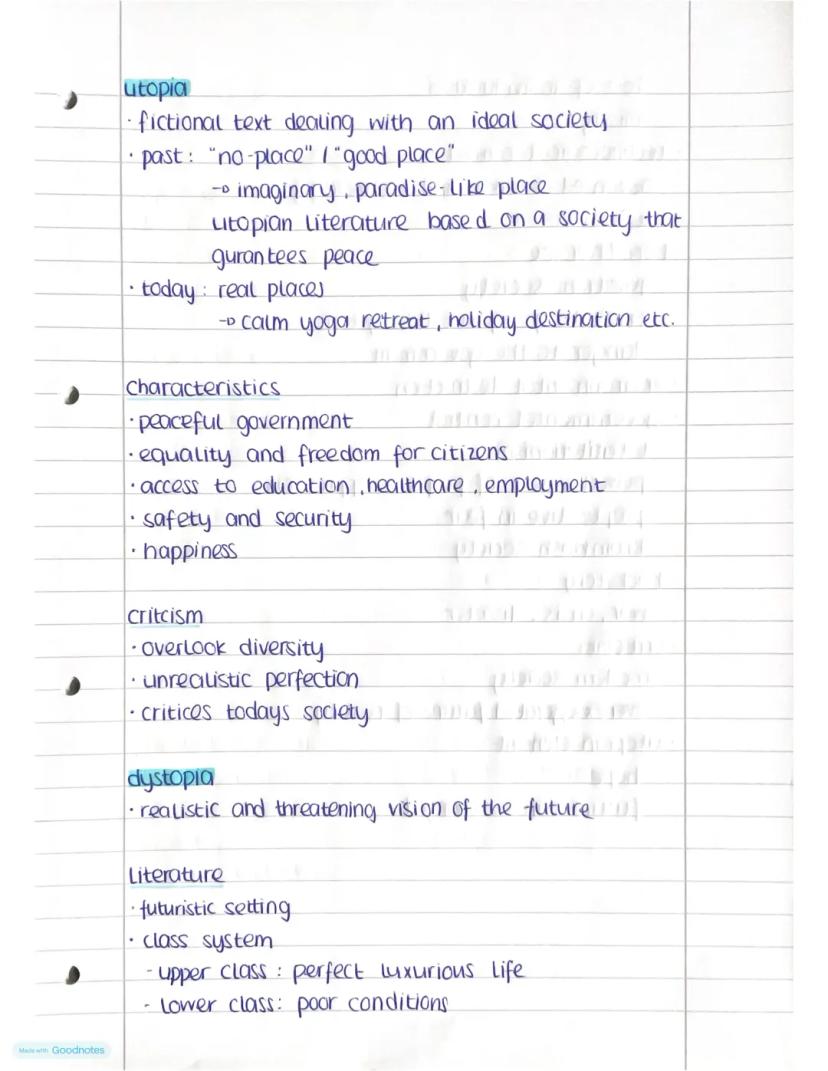 utopia
· fictional text dealing with an ideal society
· past : "no-place" / "good place"
→ imaginary, paradise-like place
utopian literature based on a society that
gurantees peace
· today : real places
→ calm yoga retreat, holiday destination etc.
Characteristics
· peaceful government
· equality and freedom for citizens
· access to education, healthcare, employment
· safety and security
· happiness
Critcism
· overlook diversity
· unrealistic perfection
· critices todays society
dystopia
· realistic and threatening vision of the future
Literature
· futuristic setting
· class system
- upper class : perfect luxurious life
- lower class: poor conditions
Made with Goodnotes